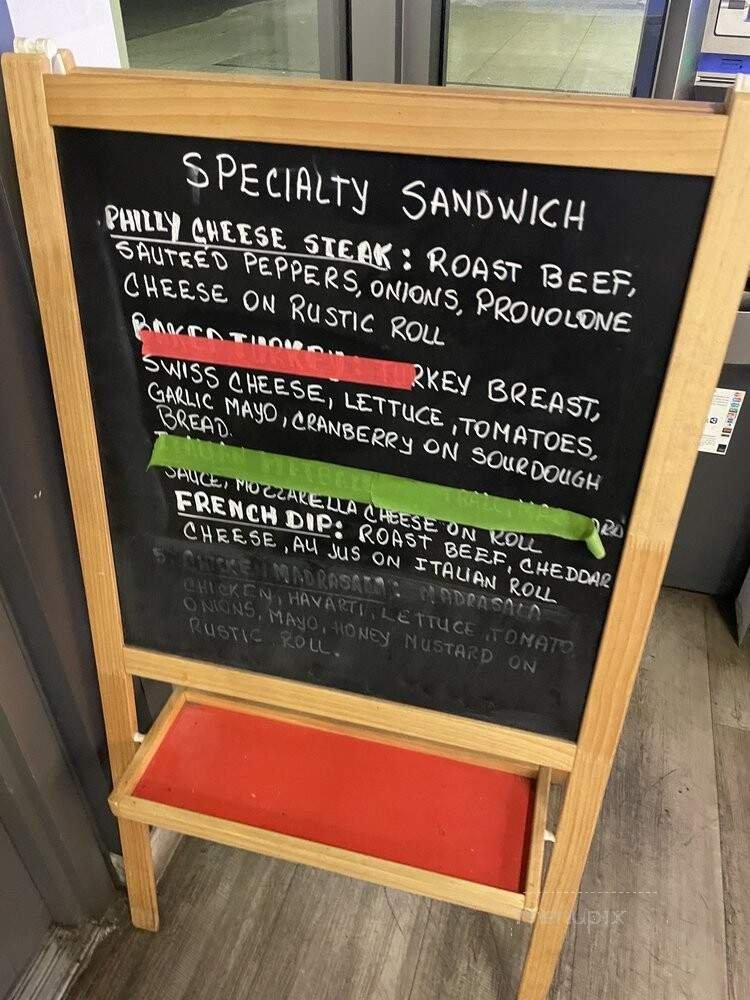 SPECIALTY SANDWICH
PHILLY CHEESE STEAK: ROAST BEEF,
SAUTEED PEPPERS, ONIONS, PROVOLONE
CHEESE ON RUSTIC ROLL
BAKED TURKEY: TURKEY BREAST,
SWISS CHEESE, LETTUCE, TOMATOES,
GARLIC MAYO, CRANBERRY ON SOURDOUGH
BREAD.
SAUCE, MOZZARELLA CHEESE ON ROLL
FRENCH DIP: ROAST BEEF, CHEDDAR
CHEESE, AU JUS ON ITALIAN ROLL
5 CHICKEN MADRASALA: MADRASALA
CHICKEN, HAVARTI, LETTUCE, TOMATO,
ONIONS, MAYO, HONEY MUSTARD ON
RUSTIC ROLL.
menupix